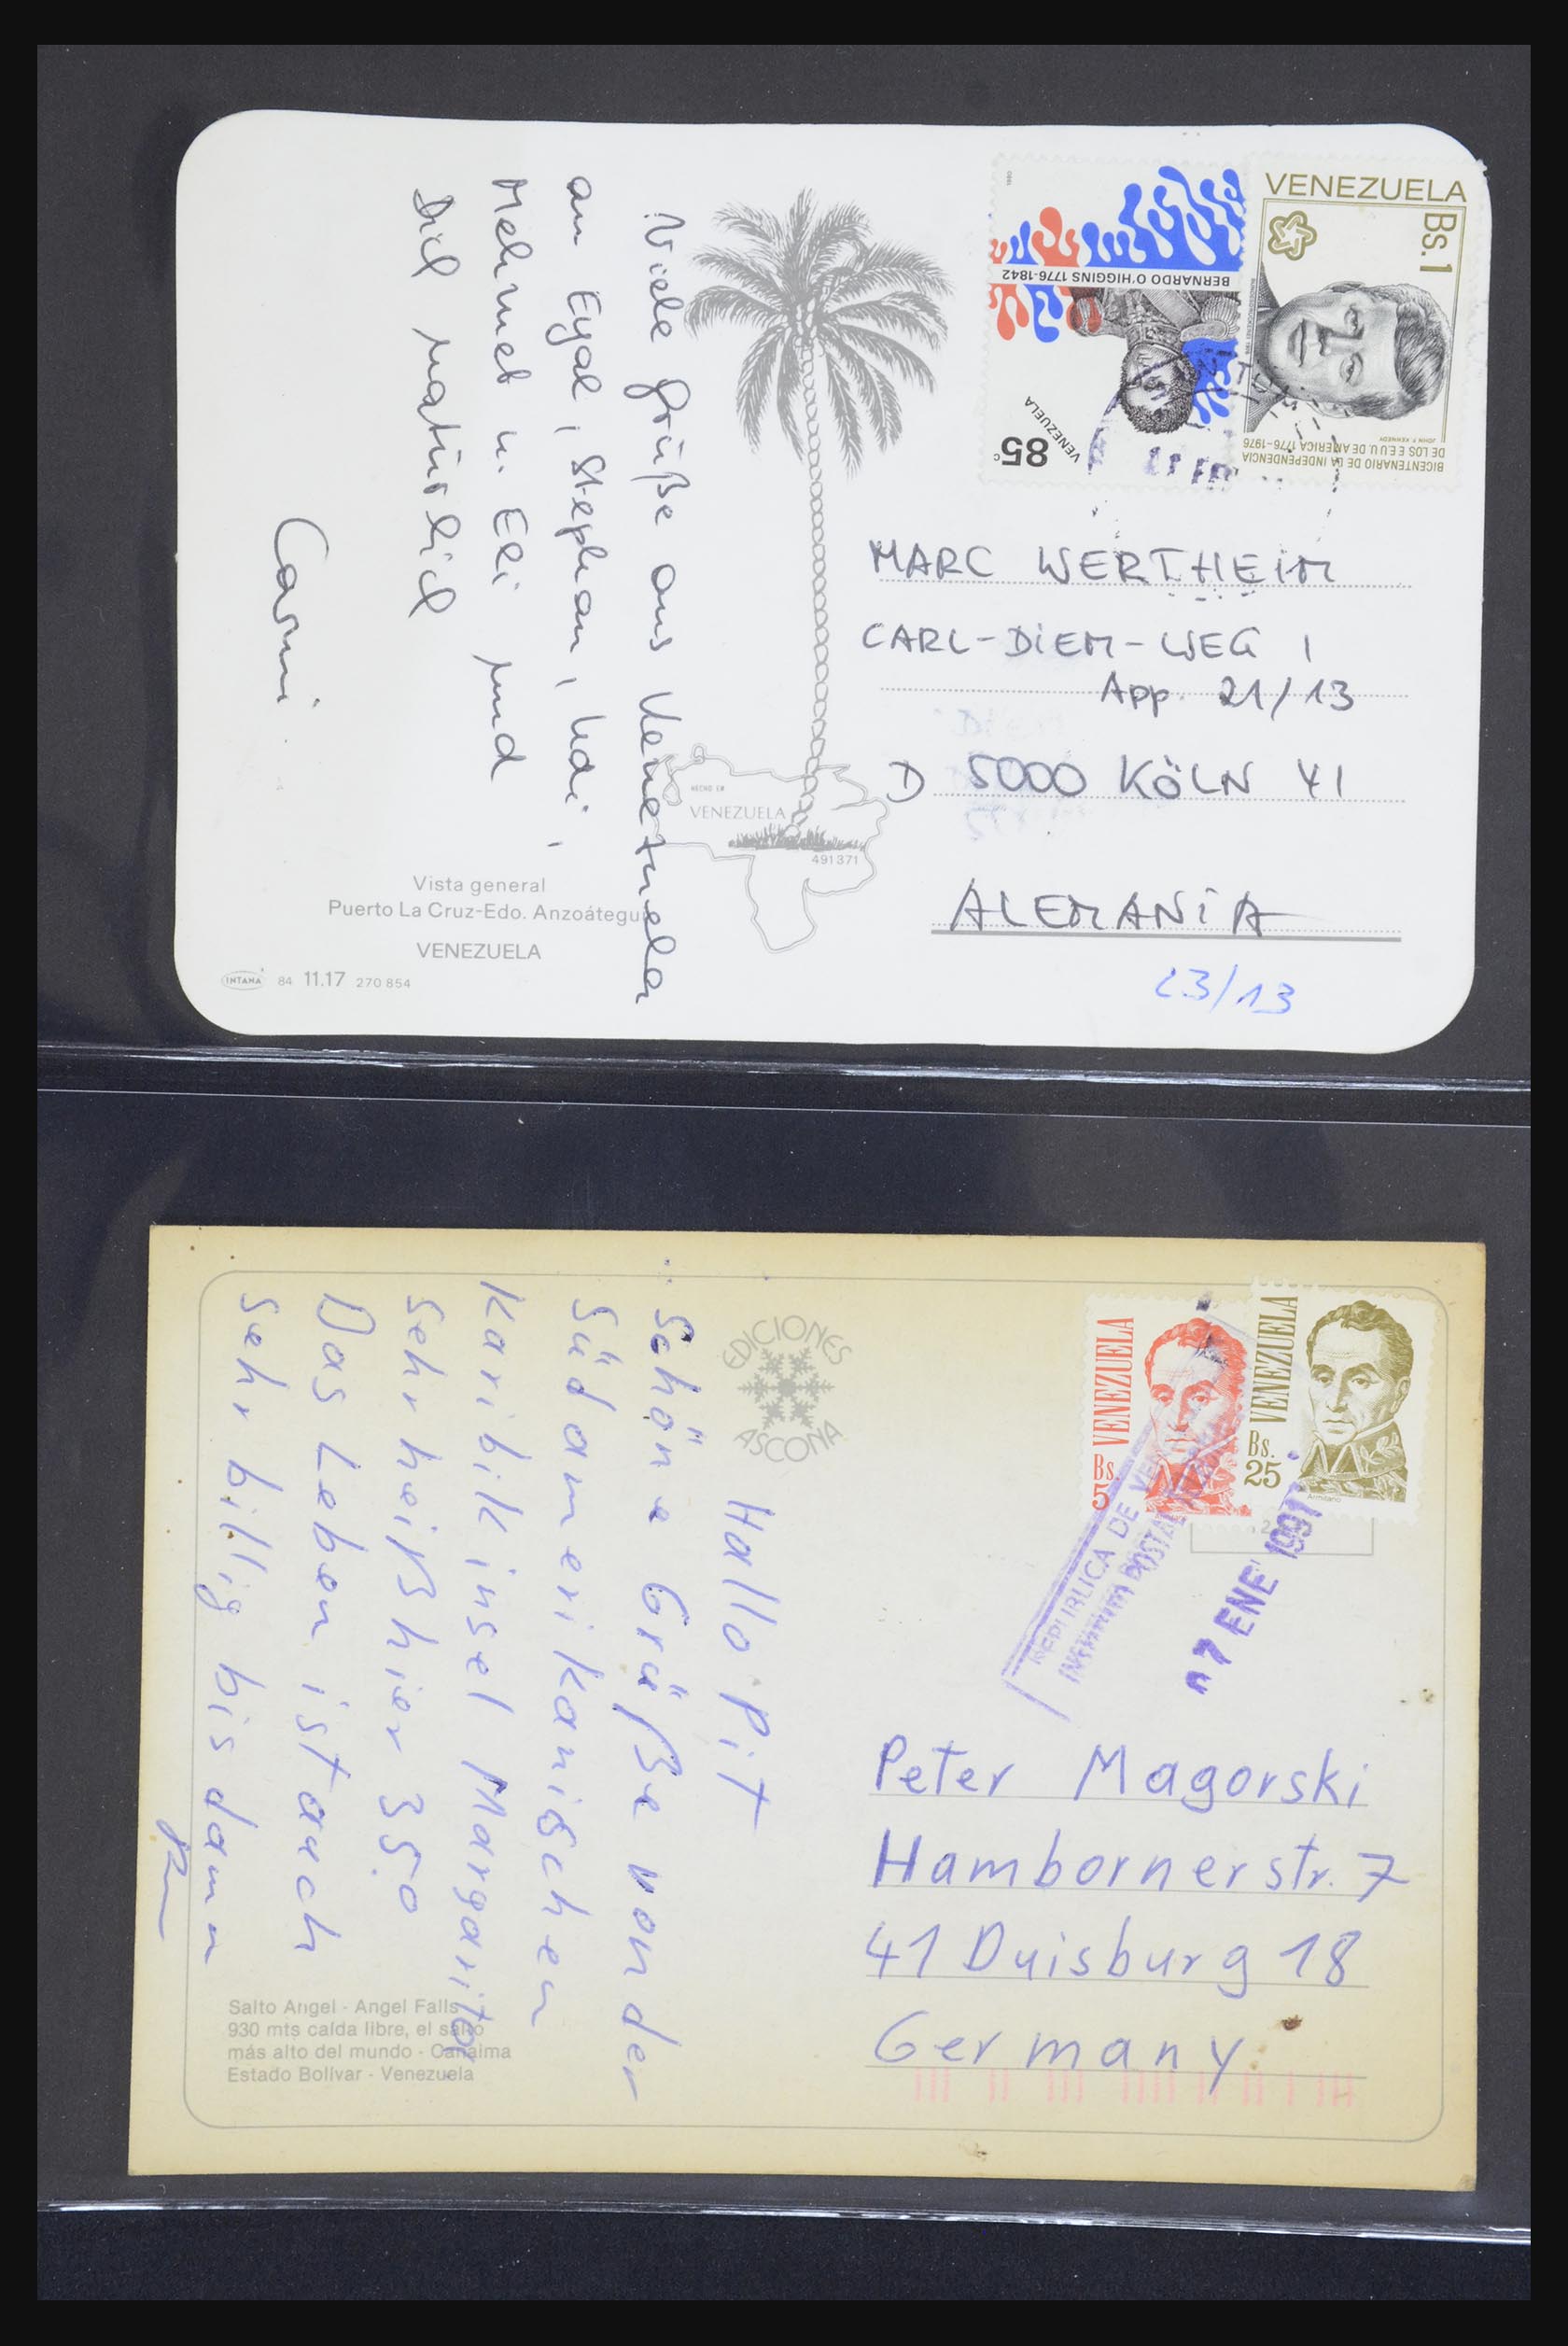 VENEZUELA
Bs.1
BICENTENARIO DE LA INDEPENDENCIA
DE LOS EE.U.U. DE AMERICA 1776-1976
JOHN F. KENNEDY
1980
BERNARDO O'HIGGINS 1776-1842
VENEZUELA
85c
Viele Grüße aus Venezuela
an Eyal, Stephan, Udi,
Mehmet u. Eli und
Dich natürlich
HECHO EN
VENEZUELA
491371
MARC WERTHEIM
CARL-DIEM-WEG 1
App. 21/13
D 5000 KÖLN 41
ALEMANIA
23/13
Vista general
Puerto La Cruz-Edo. Anzoátegui
VENEZUELA
INTANA 84 11.17 270 854
EDICIONES
ASCONA
VENEZUELA
Bs.
5
VENEZUELA
Bs.
25
REPUBLICA DE VEN
INSTITUTO POSTAL
07 ENE 1991
Hallo Pit
Schöne Grüße von der
Südamerikanischen
Karibikinsel Margarita
Sehr heiß hier 35.0
Das Leben ist auch
sehr billig bis dann
Peter Magorski
Hambornerstr. 7
41 Duisburg 18
Germany
Salto Angel - Angel Falls
930 mts caída libre, el salto
más alto del mundo - Canaima
Estado Bolívar - Venezuela